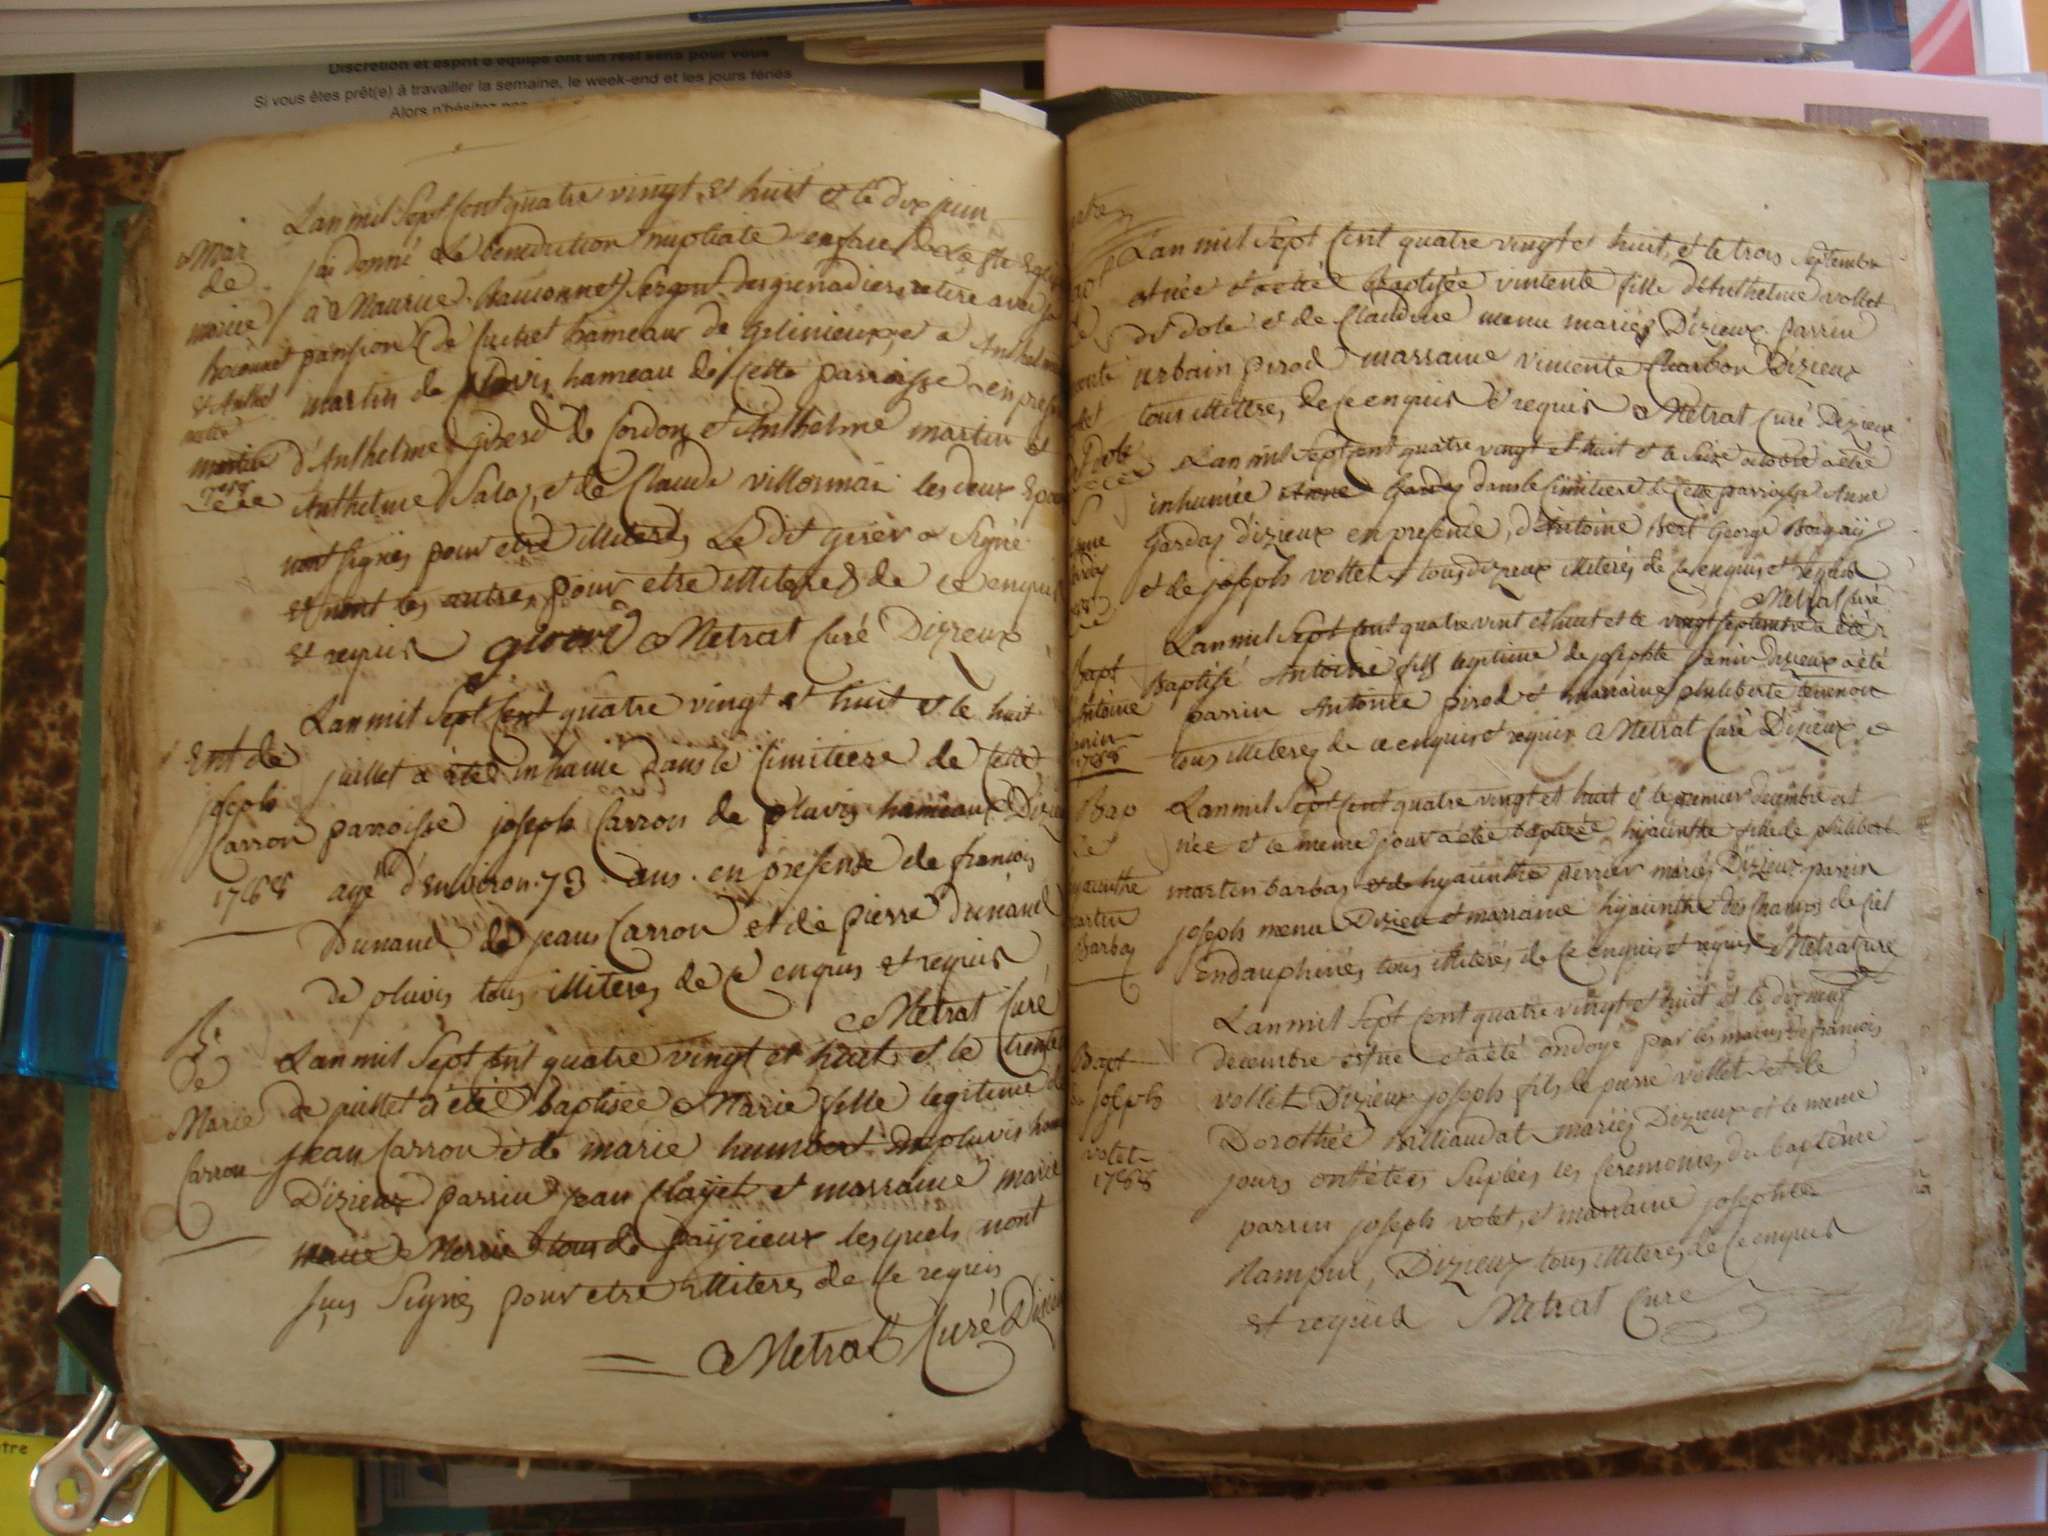 Discrétion et esprit d'équipe ont un réel sens pour vous
Si vous êtes prêt(e) à travailler la semaine, le week-end et les jours fériés
Alors n'hésitez pas
Lan mil Sept Cent quatre vingt et huit et le dix juin
jai donné La benediction nuptiale en face de La Ste Eglise
à Maurice Sergent des grenadiers retiré avec sa
pansion de Cuchet hameau de gelinieux, et a Anthel
martin de pluvis hameau de Cette parroisse en
d'Anthelme girerd de Cordon et Anthelme martin et
Anthelme Sala, et de Claude villonmai les deux
nont signés pour etre illiterés Le dit Signé
et nont les autres pour etre illiterés de ce enquis
et requis Metrat Curé Dizieux
Mar
de
&
martin
1788
Lan mil Sept Cent quatre vingt et huit et le huit
juillet a été inhumé dans le Cimitiere de Cette
parroisse joseph Carron de pluvis hameau Dizieu
agé d'Environ 73 ans en presense de francois
Dunand de jean Carron et de pierre Dunand
de pluvis tous illiterés de Ce enquis et requis
Metrat Curé
Ent de
joseph
Carron
1788
Lan mil Sept Cent quatre vingt et huit et le trente
de juillet a été baptisée Marie fille legitime de
jean Carron et de marie humbert de pluvis
Dizieux parrin jean Clayet et marraine marie
tous de payzieux lesquels nont
sçus Signés pour etre illiterés de Ce requis
Metrat Curé Dizieu
B.
de
Marie
Carron
Lan mil Sept Cent quatre vingt et huit, et le trois Septembre
est née et a été Baptisée vincente fille d'Anthelme vollet
dit dole et de Claudine menu mariés Dizieux parrin
urbain pirod marraine vincente Charbon Dizieux
tous illitères de Ce enquis et requis Metrat Curé Dizieux
Lan mil Sept Cent quatre vingt et huit et le Seize octobre a été
inhumée Anne Gardas dans le Cimitiere de Cette parroisse Anne
Gardas dizieux en presence, d'Antoine Bert George
et de joseph vollet tous dizieux illiterés de Ce enquis et requis
Metrat Curé
Lan mil Sept Cent quatre vint et huit et le vingt Septembre a été
Baptisé Antoine fils legitime de josephte Janin Dizieux a été
parrin Antoine pirod et marraine philiberte tevenon
tous illiteres de ce enquis et requis Metrat Curé Dizieux
Bapt
Antoine
Janin
1788
Lan mil Sept Cent quatre vingt et huit et le premier decembre est
née et le meme jour a été baptizée hyacinthe fille de philibert
martin barbas et de hyacinthe perrier mariés Dizieux parrin
joseph menu Dizieu et marraine hyacinthe des Champs de
En dauphinés, tous illiterés de Ce enquis et requis Metrat Curé
Bap
et
hyacinthe
martin
Barbas
Lan mil Sept Cent quatre vingt et huit et le dix neuf
decembre est né et a été ondoyé par les mains de francois
vollet Dizieux joseph fils de pierre vollet et de
Dorothée milliandat mariés Dizieux et le meme
jours ont étées Suplées les Ceremonies du baptême
parrin joseph volet, et marraine josephte
Dizieux tous illiteres de Ce enquis
et requis Metrat Curé
Bapt
de joseph
volet
1788